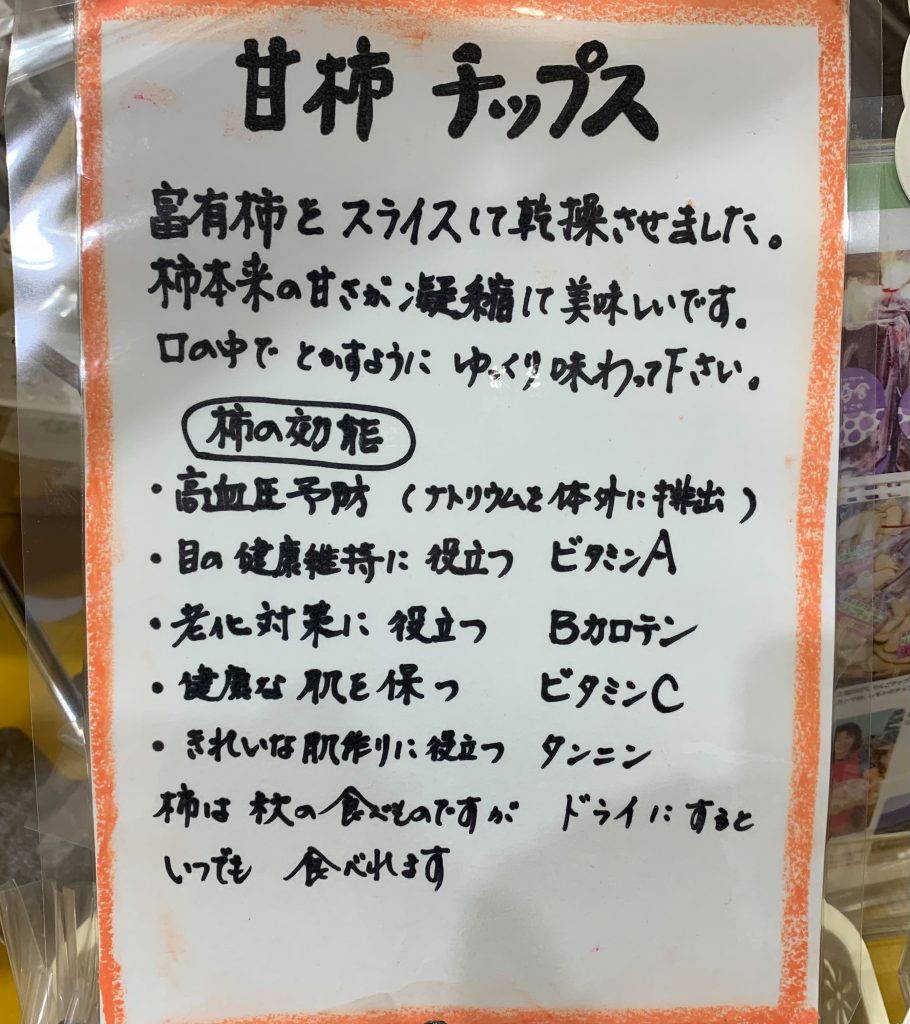 甘柿 チップス
富有柿を スライスして乾操させました。
柿本来の甘さが 凝縮して美味しいです。
口の中で とかすように ゆっくり味わって下さい。
柿の効能
・高血圧予防 (ナトリウムを体外に排出)
・目の健康維持に 役立つ ビタミンA
・老化対策に 役立つ Bカロテン
・健康な 肌を保つ ビタミンC
・きれいな肌作りに役立つ タンニン
柿は 秋の食べものですが ドライにすると
いつでも 食べれます